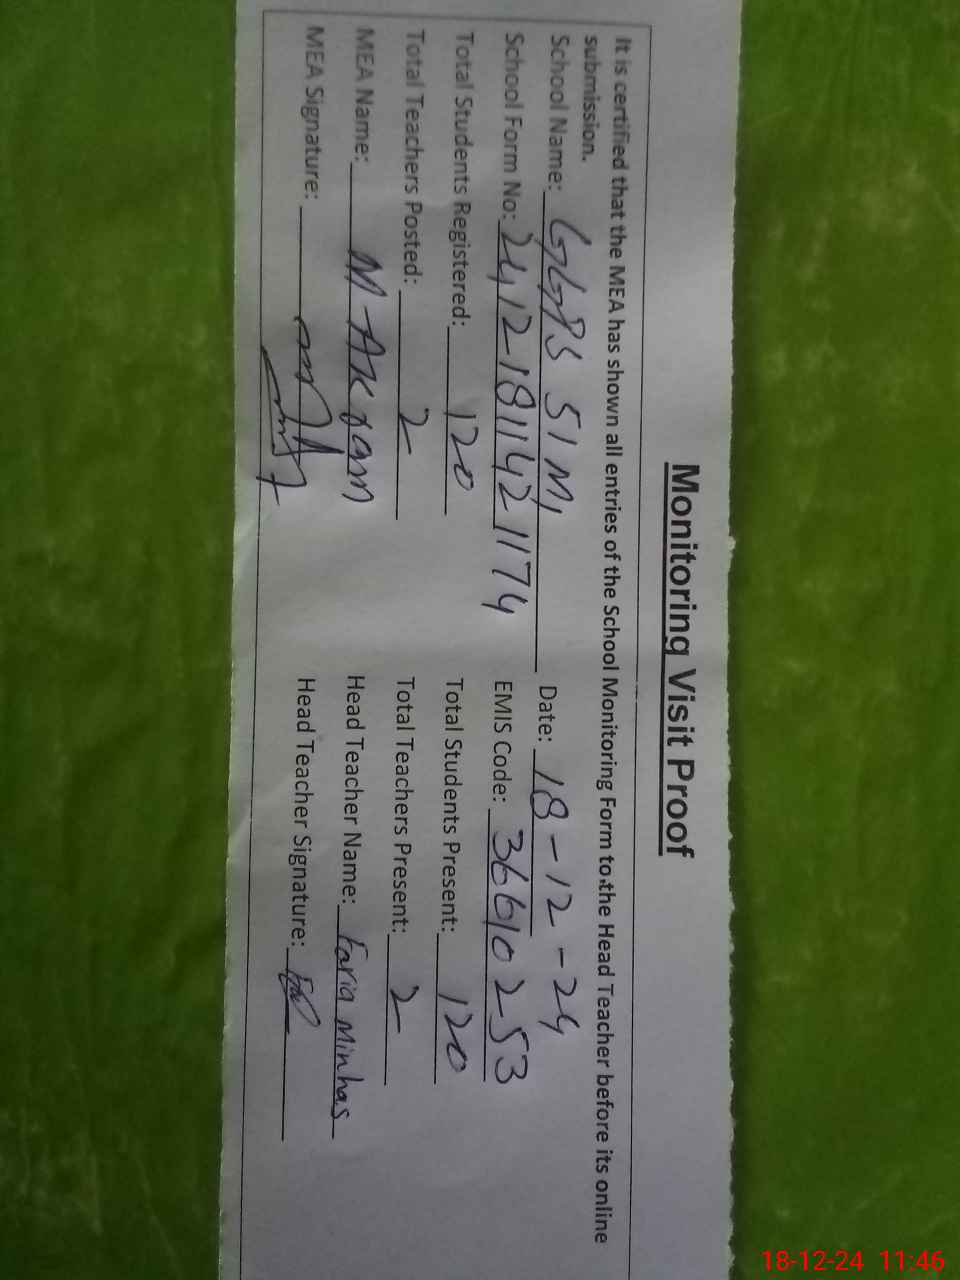 Monitoring Visit Proof
It is certified that the MEA has shown all entries of the School Monitoring Form to the Head Teacher before its online
submission.
School Name: GGPS 51 M, Date: 18-12-24
School Form No: 2412181142 1174 EMIS Code: 36610253
Total Students Registered: 120 Total Students Present: 120
Total Teachers Posted: 2 Total Teachers Present: 2
MEA Name: M-Akram Head Teacher Name: Faria Minhas
MEA Signature: Head Teacher Signature:
18-12-24 11:46